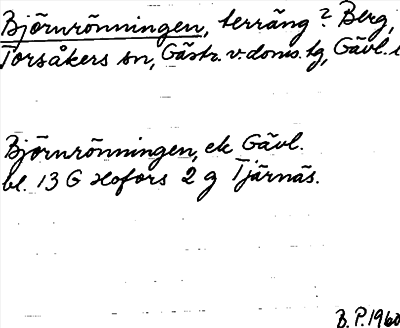 Björnrönningen, terräng? Berg,
Torsåkers sn, Gästr. v. doms. tg, Gävl. l
Björnrönningen, ek Gävl.
bl. 13 G Hofors 2 g Tjärnäs.
B. P. 1960